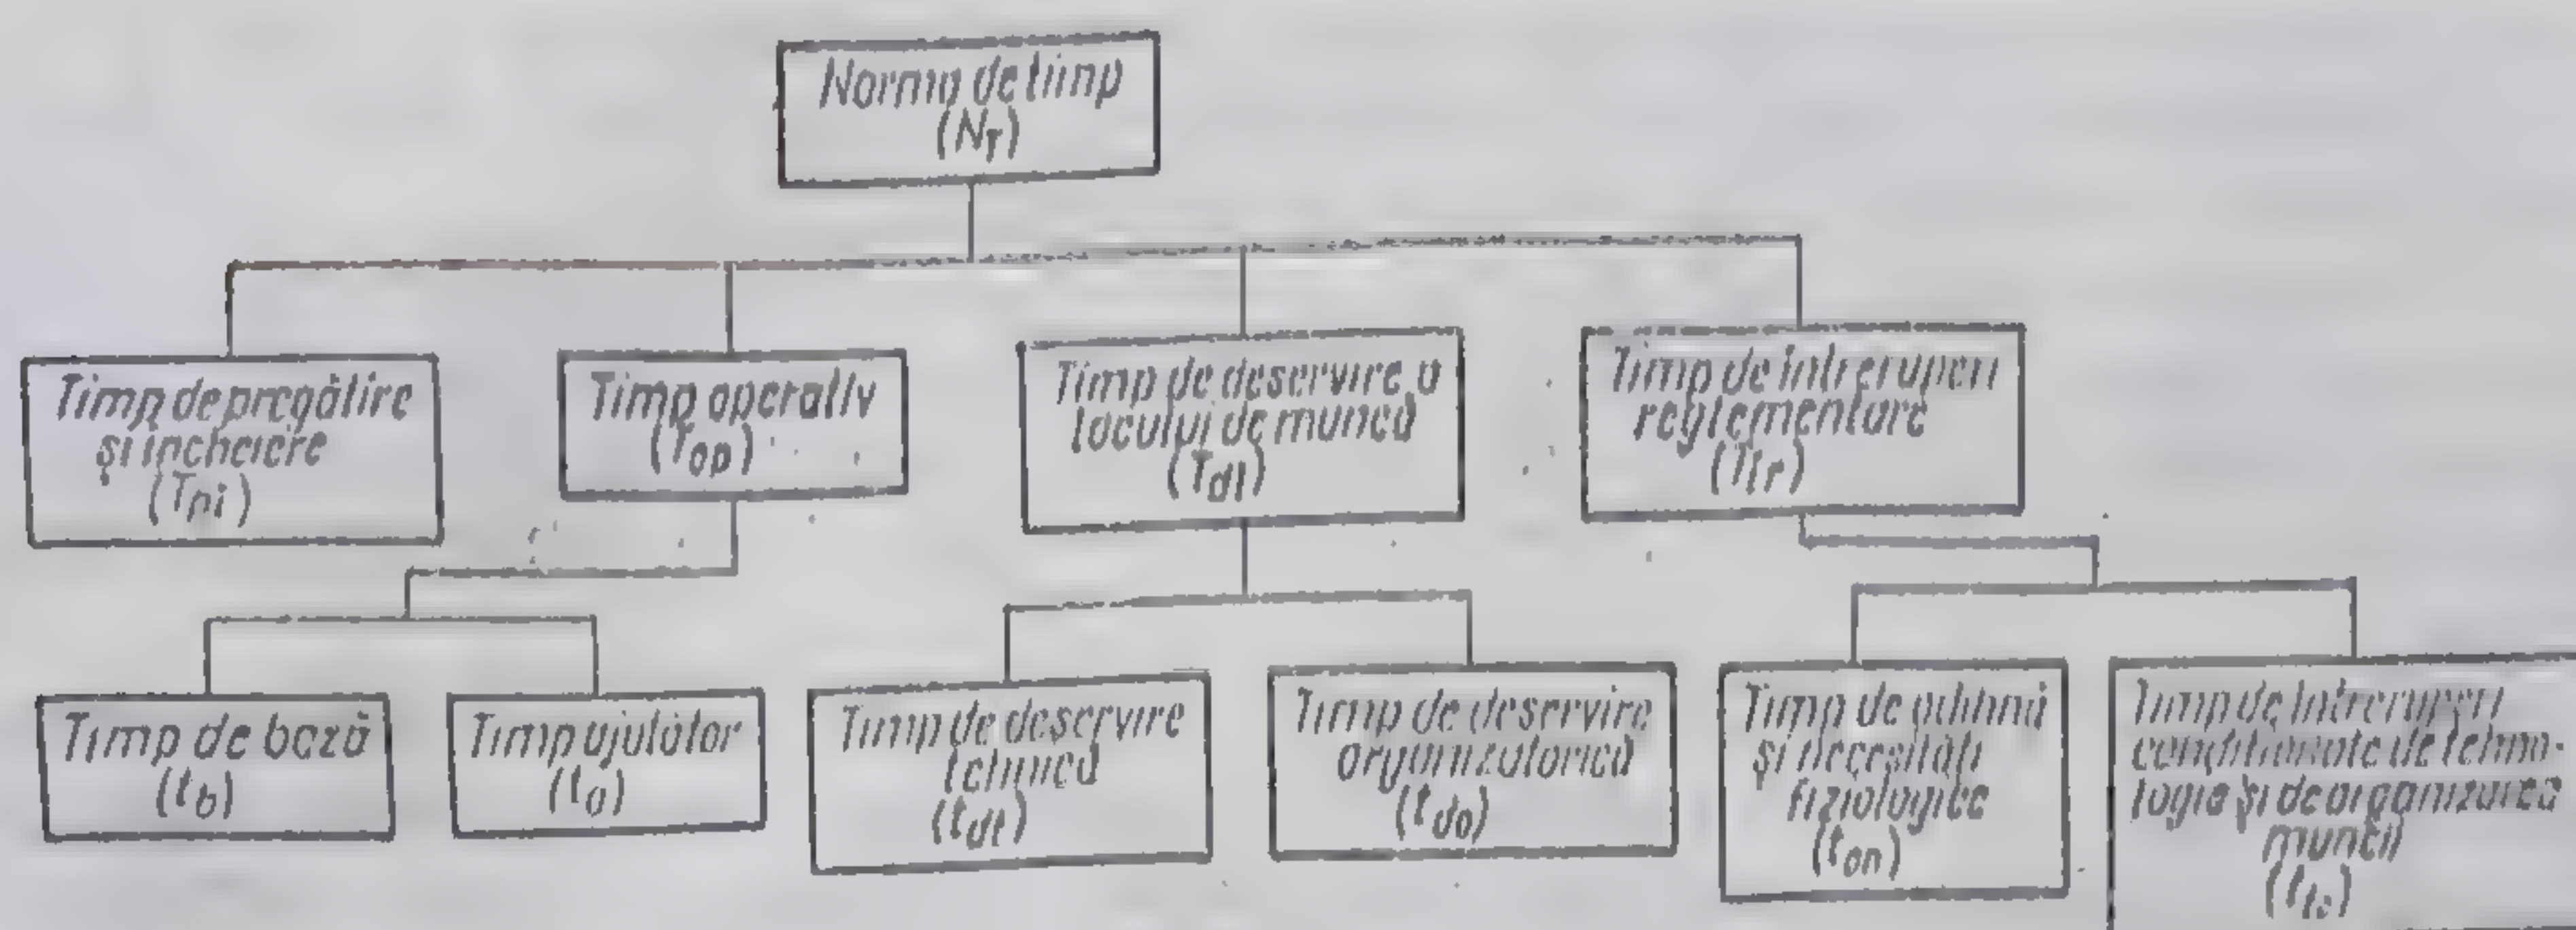 Normă de timp
(NT)
Timp de pregătire
și încheiere
(Tpi)
Timp operativ
(Top)
Timp de deservire a
locului de muncă
(Tdl)
Timp de întreruperi
reglementare
(Tîr)
Timp de bază
(tb)
Timp ajutător
(ta)
Timp de deservire
tehnică
(tdt)
Timp de deservire
organizatorică
(tdo)
Timp de odihnă
și necesități
fiziologice
(ton)
Timp de întreruperi
condiționate de tehno-
logie și de organizarea
muncii